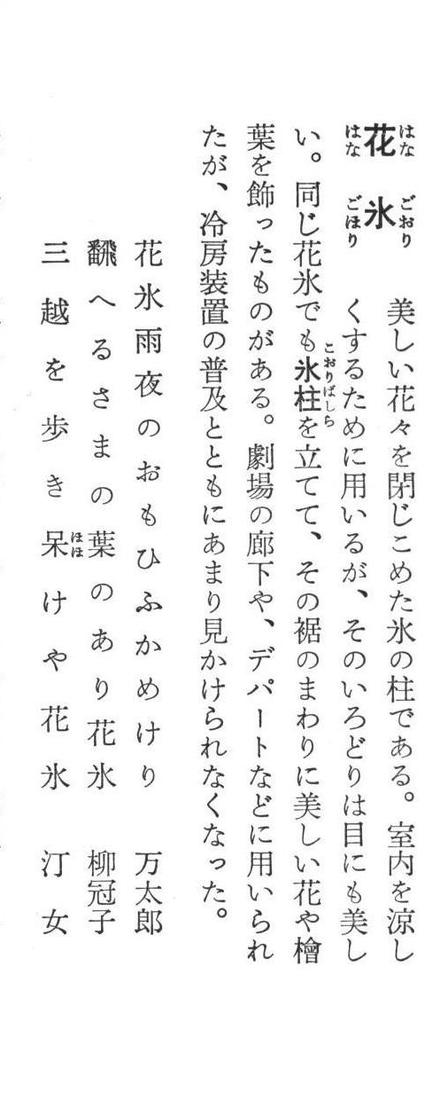 花氷
はなごおり
はなごほり
美しい花々を閉じこめた氷の柱である。室内を涼し
くするために用いるが、そのいろどりは目にも美し
い。同じ花氷でも氷柱を立てて、その裾のまわりに美しい花や檜
こおりばしら
葉を飾ったものがある。劇場の廊下や、デパートなどに用いられ
たが、冷房装置の普及とともにあまり見かけられなくなった。
花氷雨夜のおもひふかめけり 万太郎
飜へるさまの葉のあり花氷 柳冠子
三越を歩き呆けや花氷 汀女
ほほ